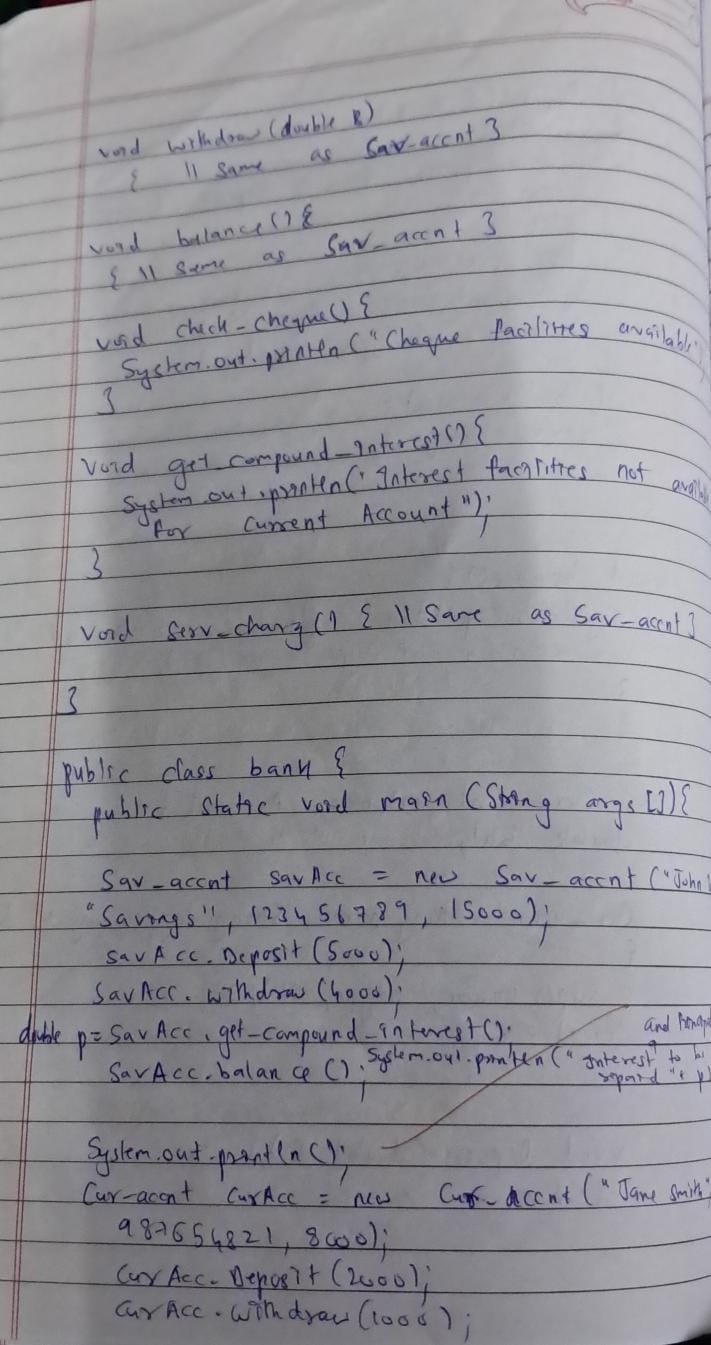 void withdraw (double B)
{ // same as Sav-accnt }
void balance() {
{ // same as Sav_accnt }
void check-cheque() {
System.out.println ("Cheque facilities available
}
void get_compound_interest() {
System.out.println ("Interest facilities not
for Current Account");
}
void serv_charg () { // Same as Sav-accnt }
}
public class bank {
public static void main (String args []) {
Sav_accnt savAcc = new Sav_accnt ("John
"Savings", 123456789, 15000);
savAcc.Deposit (5000);
SavAcc.withdraw (4000);
double p = SavAcc.get-compound_interest();
and
SavAcc.balance (); System.out.println (" Interest to
repaid "+ p
System.out.println ();
Cur-accnt CurAcc = new Cur-Accnt ("Jane Smith"
987654821, 8000);
CurAcc.Deposit (2000);
CurAcc.withdraw (1000);